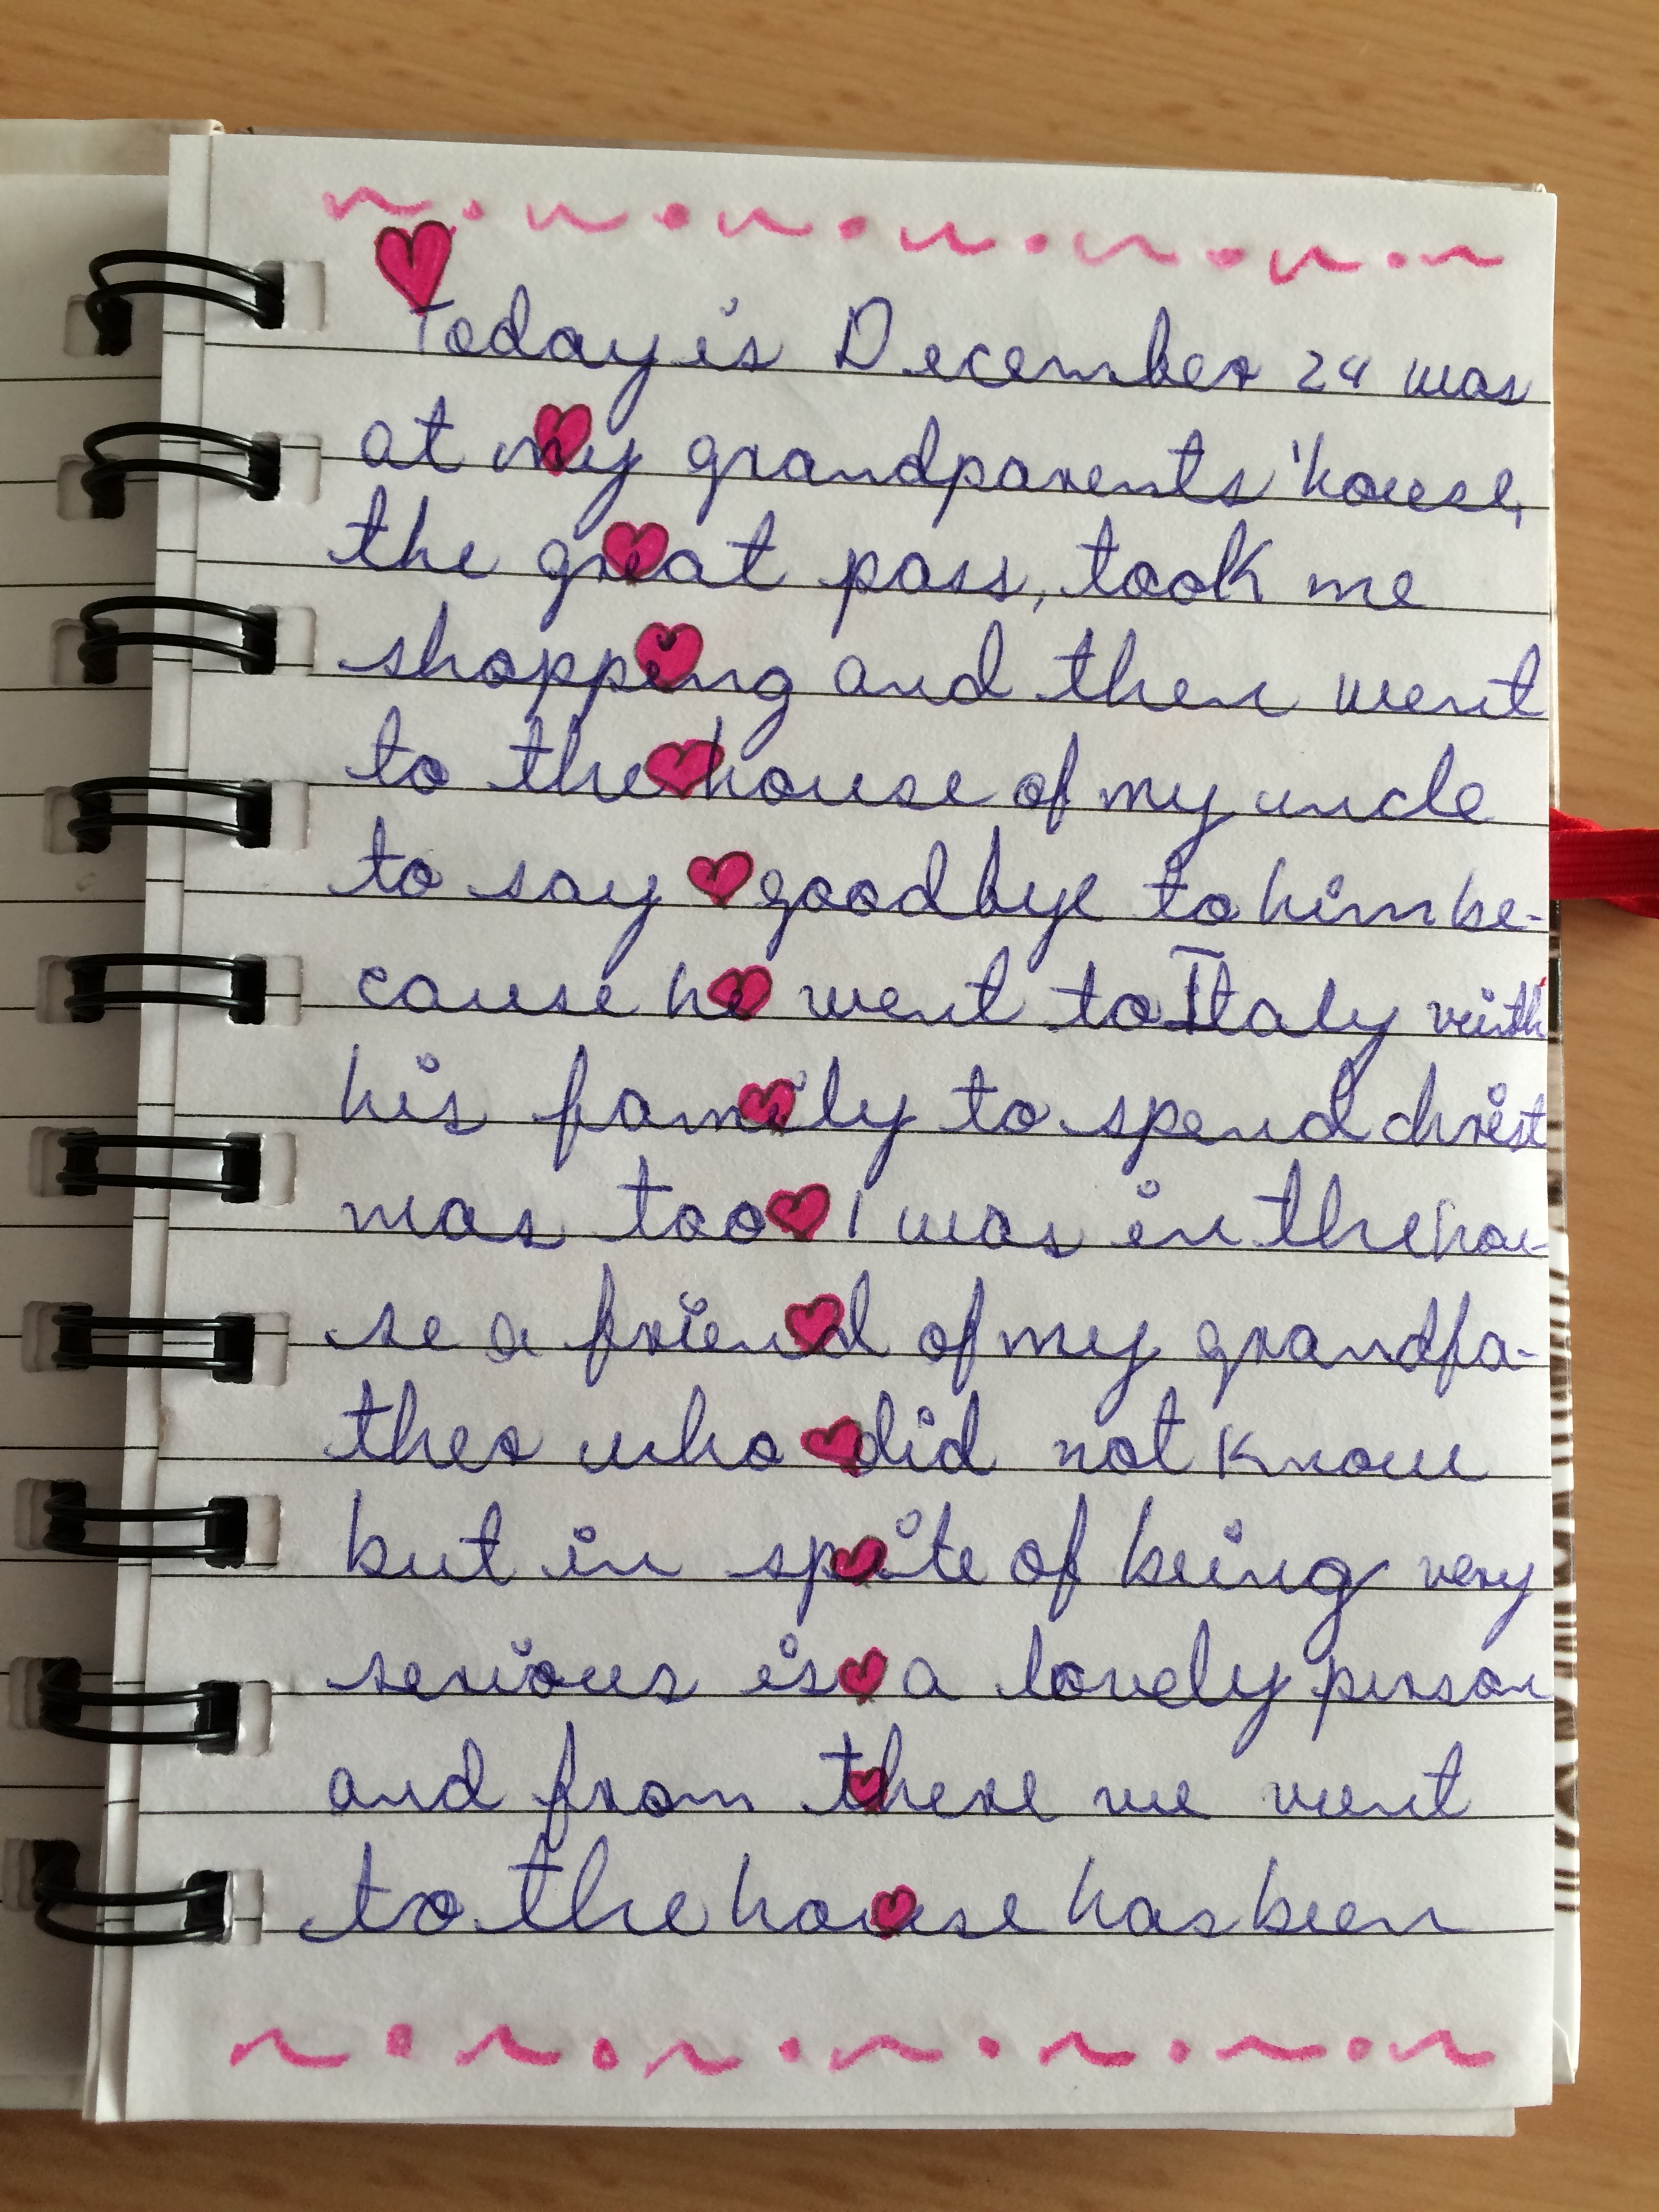 Today is December 24 was
at my grandparents 'house,
the great pass, took me
shopping and then went
to the house of my uncle
to say goodbye to him be-
cause he went to Italy with
his family to spend christ
mas too I was in the hou-
se a friend of my grandfa-
ther who did not know
but in spite of being very
serious is a lovely person
and from there we went
to the house has been